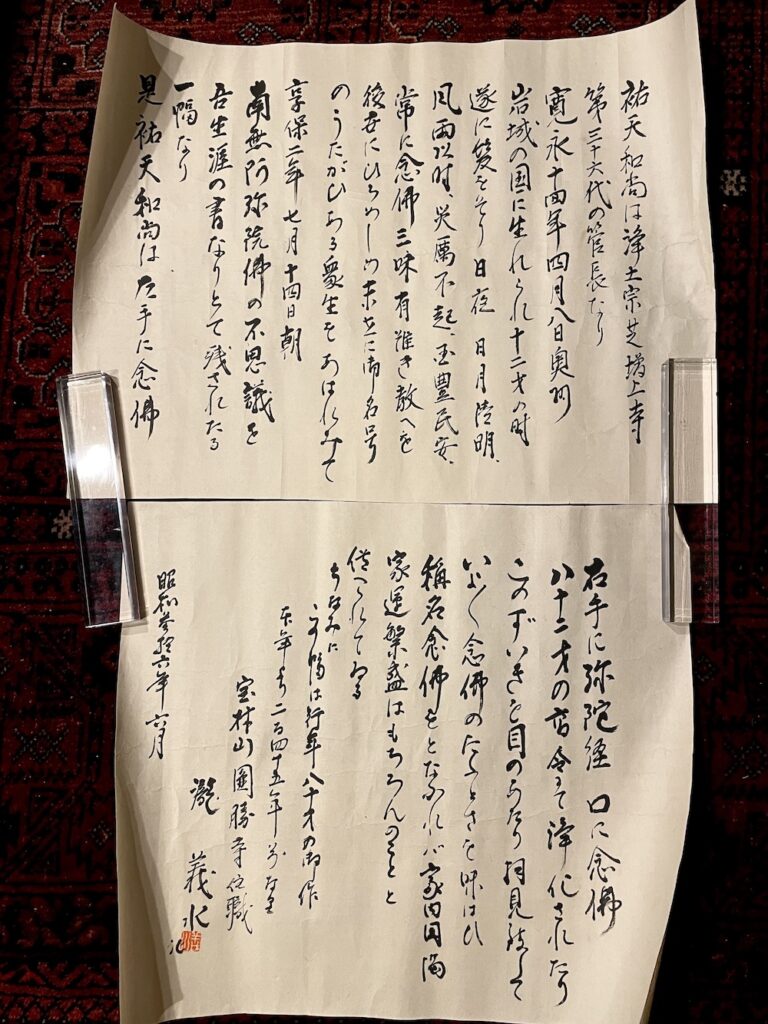 祐天和尚は浄土宗芝増上寺
第三十六代の管長なり
寛永十四年四月八日奥州
岩城の国に生れられ十二才の時
遂に髪をそり日夜 日月清明、
風雨以時、災厲不起、国豊民安、
常に念佛三味有難き教へを
後世にひろめし の末世に御名号
のうたがひある衆生をあはれみて
享保二年七月十四日朝
南無阿弥陀佛の不思議を
吾生涯の書なりとて残されたる
一幅なり
是祐天和尚は左手に念佛
右手に弥陀経 口に念佛
八十二才の 浄化されたり
このずいきを目のあたり拝見致して
いよ〱念佛のたふとさを味はひ
称名念佛をとなふれば家内円満
家運繁盛はもちろんのことと
信へられてゐる
ちなみに
この幅は行年八十才の御作
本年より二百四十五年前なり
宝林山圓勝寺住職
瀧 義水
昭和参拾六年六月